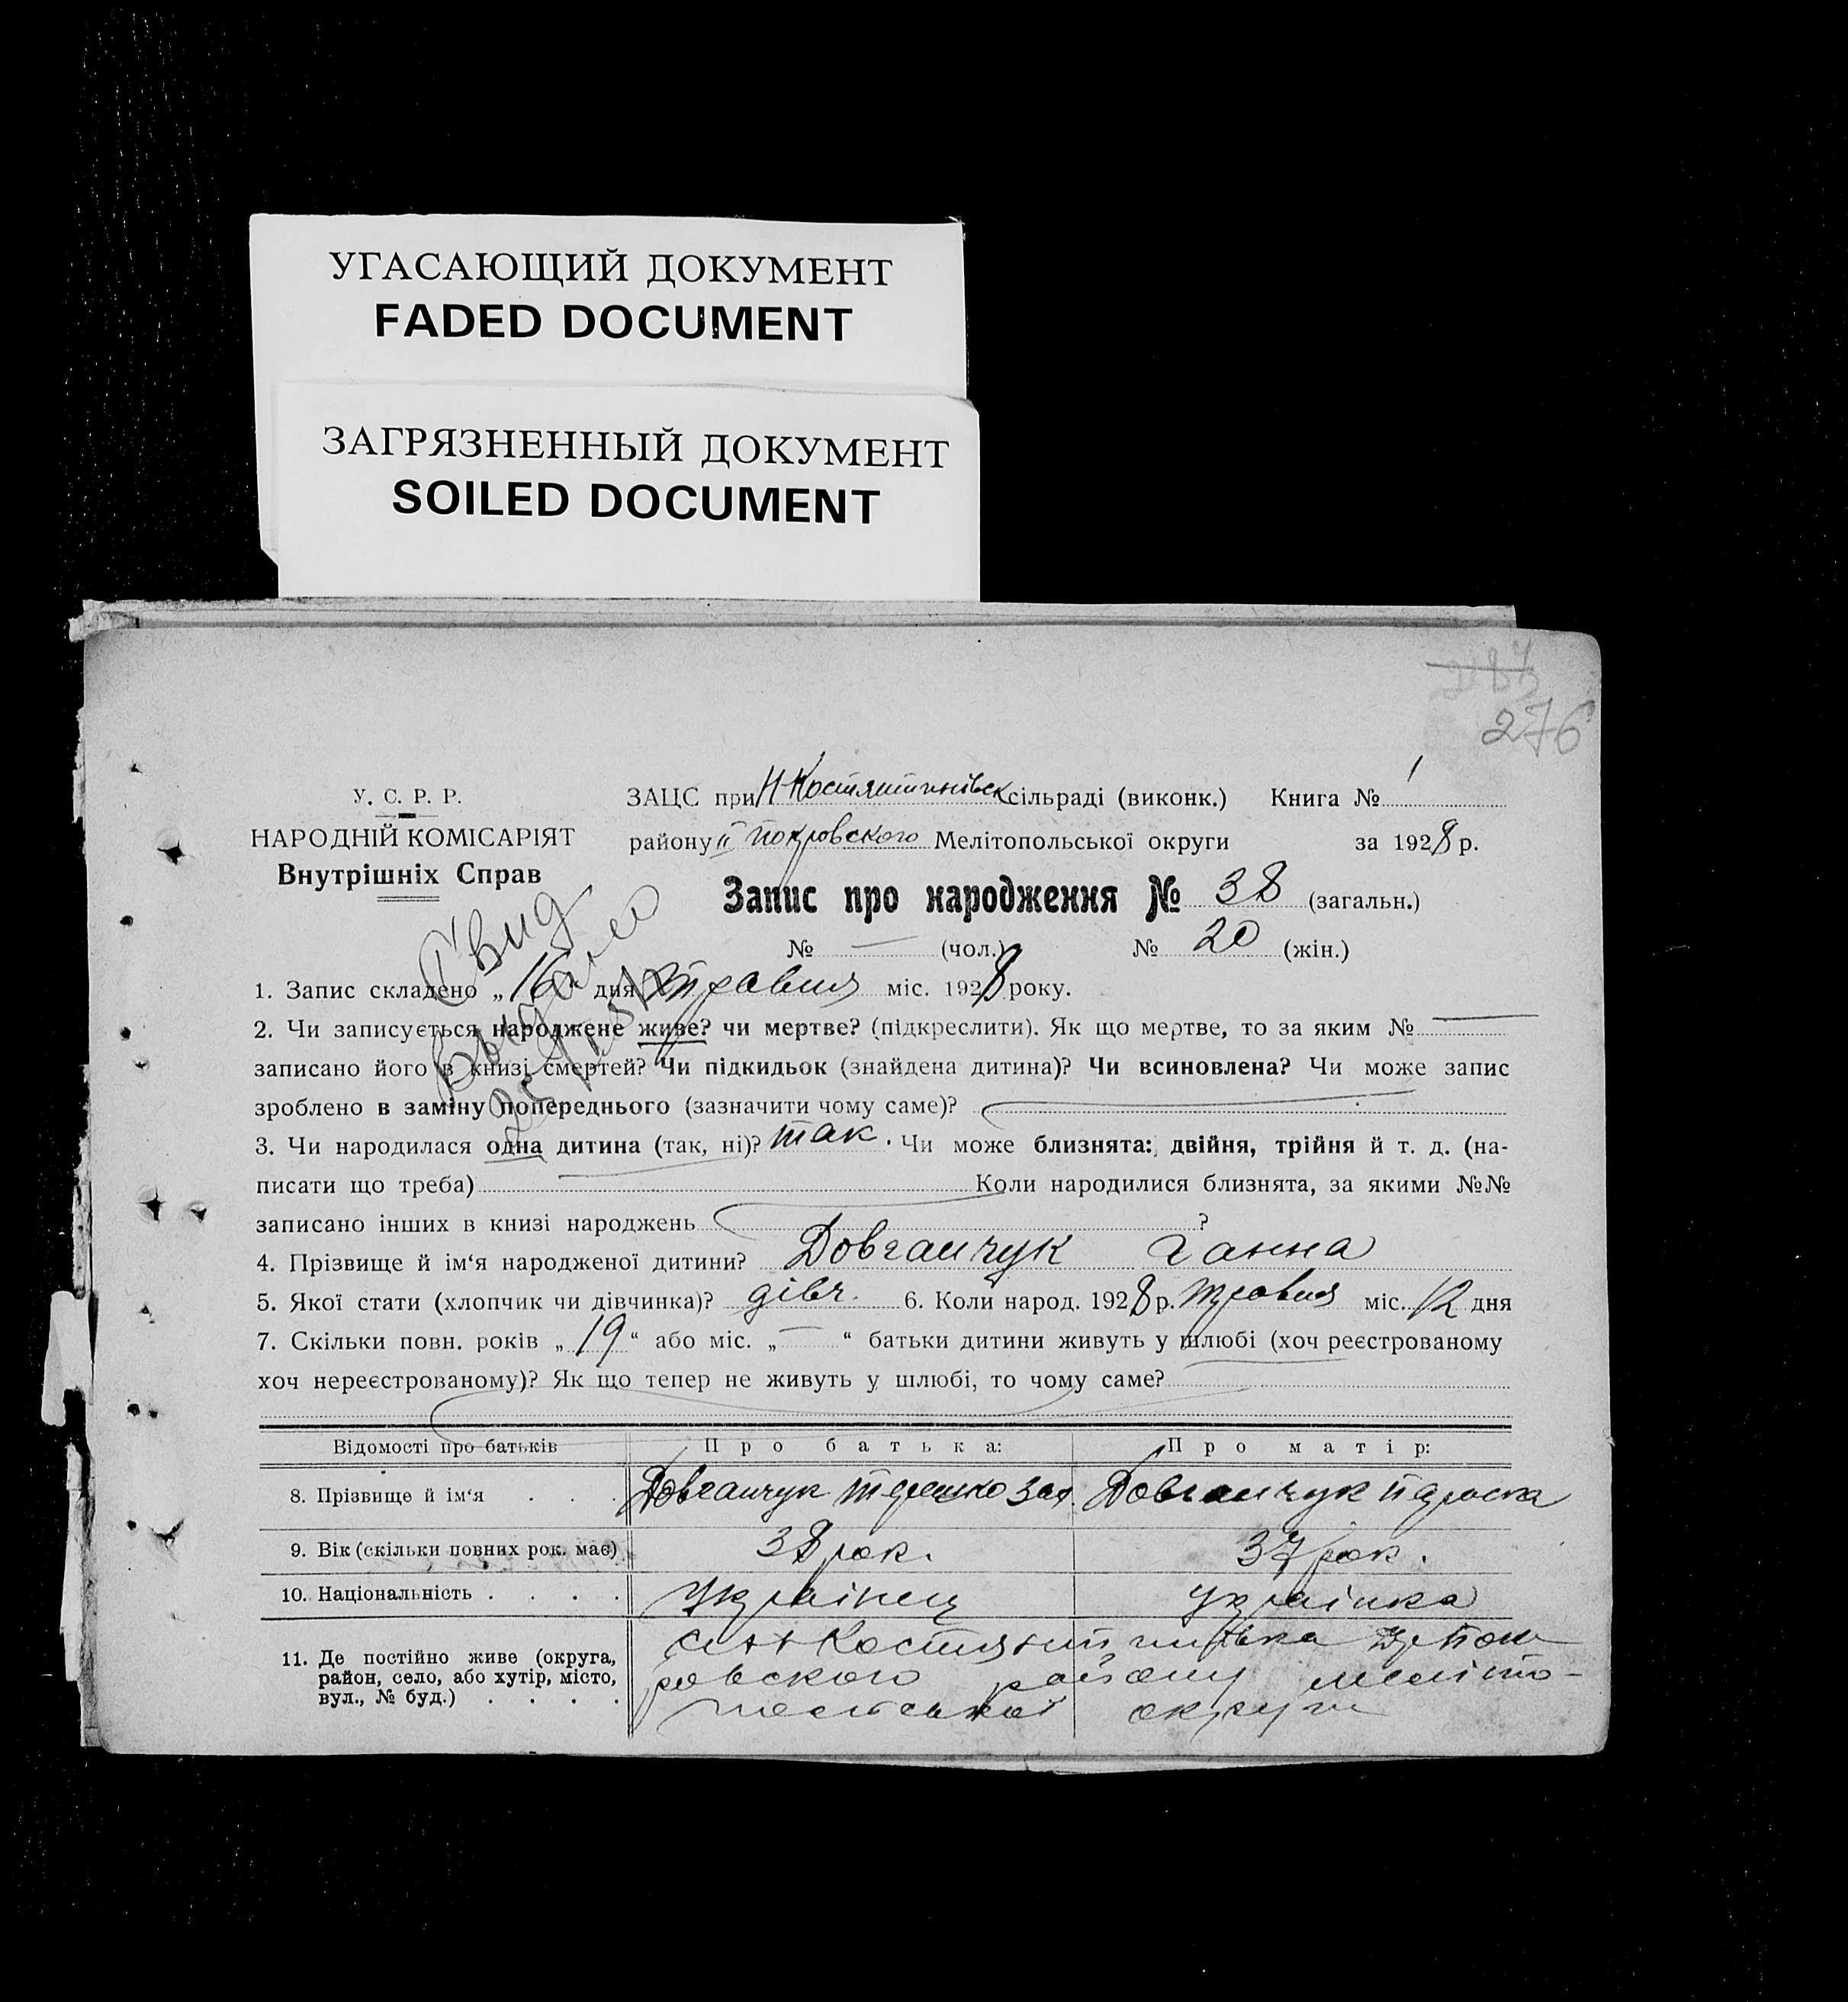 УГАСАЮЩИЙ ДОКУМЕНТ
FADED DOCUMENT
ЗАГРЯЗНЕННЫЙ ДОКУМЕНТ
SOILED DOCUMENT
276
У. С. Р. Р.
НАРОДНІЙ КОМІСАРІЯТ
Внутрішніх Справ
ЗАЦС при Н-Костянтинівск сільраді (виконк.) Книга № 1
району ІІ Покровского Мелітопольської округи за 1928 р.
Запис про народження № 38 (загальн.)
№ — (чол.) № 20 (жін.)
Свид
1. Запис складено „16“ дня травня міс. 1928 року.
2. Чи записується народжене живе? чи мертве? (підкреслити). Як що мертве, то за яким № —
записано його в книзі смертей? Чи підкидьок (знайдена дитина)? Чи всиновлена? Чи може запис
зроблено в заміну попереднього (зазначити чому саме)?
3. Чи народилася одна дитина (так, ні)? так. Чи може близнята: двійня, трійня й т. д. (на-
писати що треба) Коли народилися близнята, за якими №№
записано інших в книзі народжень ?
4. Прізвище й ім‘я народженої дитини? Довганчук Ганна
5. Якої стати (хлопчик чи дівчинка)? дівч. 6. Коли народ. 1928 р. травня міс. 12 дня
7. Скільки повн. років „19“ або міс. „—“ батьки дитини живуть у шлюбі (хоч реєстрованому
хоч нереєстрованому)? Як що тепер не живуть у шлюбі, то чому саме?
Відомості про батьків Про батька: Про матір:
8. Прізвище й ім‘я . . . Довганчук Довганчук
9. Вік (скільки повних рок. має) 38 рок. 37 рок.
10. Національність . . . . Українец Українка
11. Де постійно живе (округа,
район, село, або хутір, місто,
вул., № буд.) . . . .
ровского району меліто-
польської округи